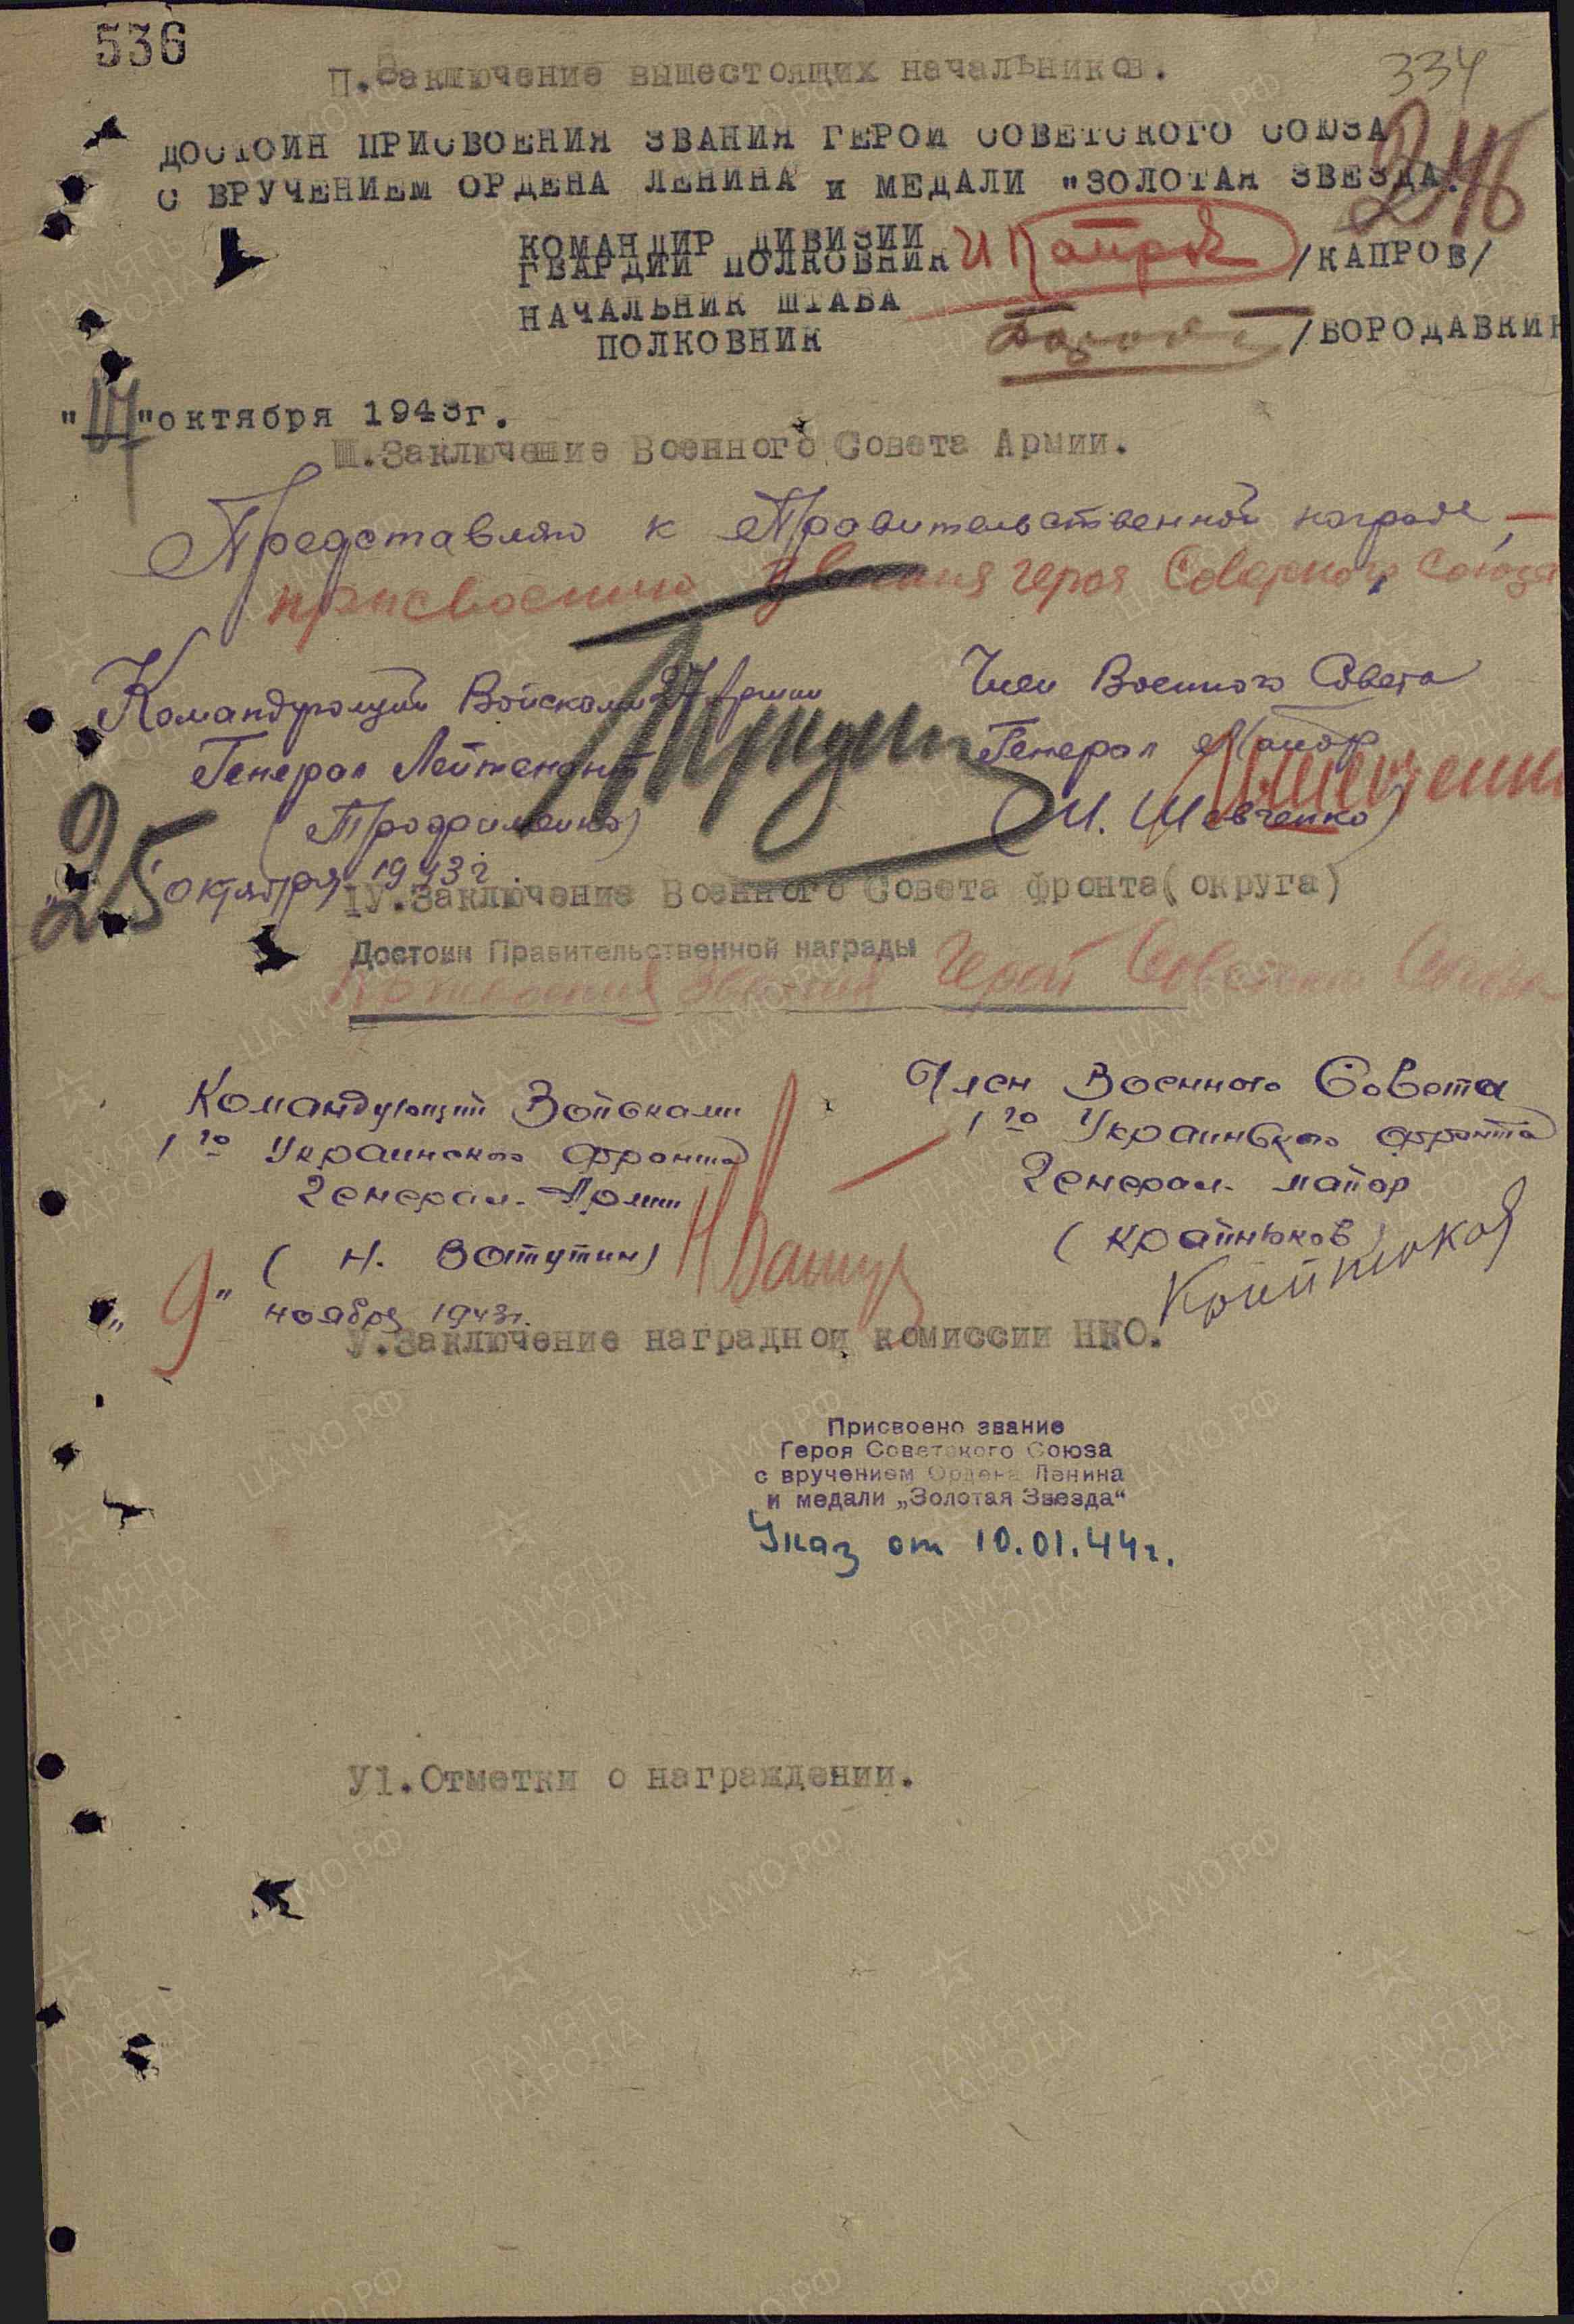 536
334
П.Заключение вышестоящих начальников.
246
ДОСТОИН ПРИСВОЕНИЯ ЗВАНИЯ ГЕРОЙ СОВЕТСКОГО СОЮЗА
С ВРУЧЕНИЕМ ОРДЕНА ЛЕНИНА и МЕДАЛИ "ЗОЛОТАЯ ЗВЕЗДА".
КОМАНДИР ДИВИЗИИ
ГВАРДИИ ПОЛКОВНИК И Капров /КАПРОВ/
НАЧАЛЬНИК ШТАБА
ПОЛКОВНИК /БОРОДАВКИН
" "октября 1943г.
Ш.Заключение Военного Совета Армии.
Представляю к Правительственной награде, —
присвоению звания героя Советского Союза
Командующий Войсками 27 Армии
Генерал Лейтенант
(Трофименко)
Член Военного Совета
Генерал Майор
(И. Шевченко)
"25" октября 1943г
1У.Заключение Военного Совета фронта(округа)
Достоин Правительственной награды
присвоения звания Герой Советского Союза
Командующий Войсками
1го Украинского фронта
Генерал-Армии
( Н. Ватутин) НВатут
Член Военного Совета
1го Украинского фронта
Генерал-майор
(Крайнюков)
Крайнюков
"9" ноября 1943г.
У.Заключение наградной комиссии НКО.
Присвоено звание
Героя Советского Союза
с вручением Ордена Ленина
и медали „Золотая Звезда“
Указ от 10.01.44г.
У1.Отметки о награждении.
ЦАМО.РФ
ПАМЯТЬ
НАРОДА